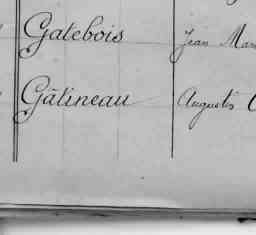 Gatebois Jean Mar
Gâtineau Auguste